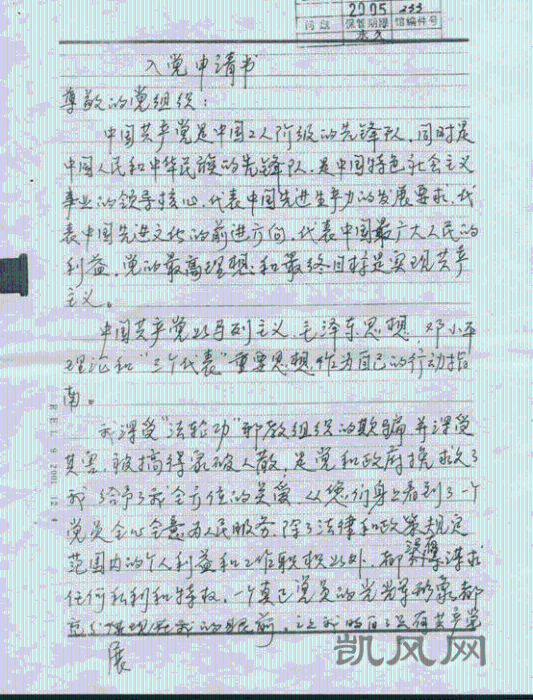 2005 233
问题 保管期限 馆编件号
永久
入党申请书
尊敬的党组织：
中国共产党是中国工人阶级的先锋队，同时是
中国人民和中华民族的先锋队，是中国特色社会主义
事业的领导核心，代表中国先进生产力的发展要求，代
表中国先进文化的前进方向，代表中国最广大人民的
利益，党的最高理想和最终目标是实现共产
主义。
中国共产党以马列主义、毛泽东思想、邓小平
理论和“三个代表”重要思想，作为自己的行动指
南。
我深受“法轮功”邪教组织的欺骗，并深受
其害，被搞得家破人散，是党和政府挽救了
我，给予了我全方位的关爱，从您们身上看到了一个
党员全心全意为人民服务，除了法律和政策规定
范围内的个人利益和工作职权以外，都不得谋求
任何私利和特权，一个真正党员的光辉形象都
充分体现在我的眼前
展
REL 9 2001 12
凯风网